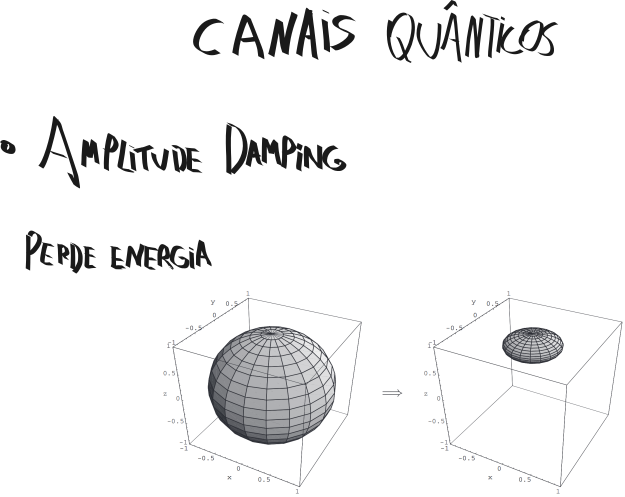 CANAIS QUÂNTICOS
• AMPLITUDE DAMPING
PERDE ENERGIA
y 0.5 1
0
-0.5
-1
1
0.5
z 0
-0.5
-1
-1
-0.5
0
x 0.5
1
⇒
y 0.5 1
0
-0.5
-1
1
0.5
z 0
-0.5
-1
-1
-0.5
0
x 0.5
1